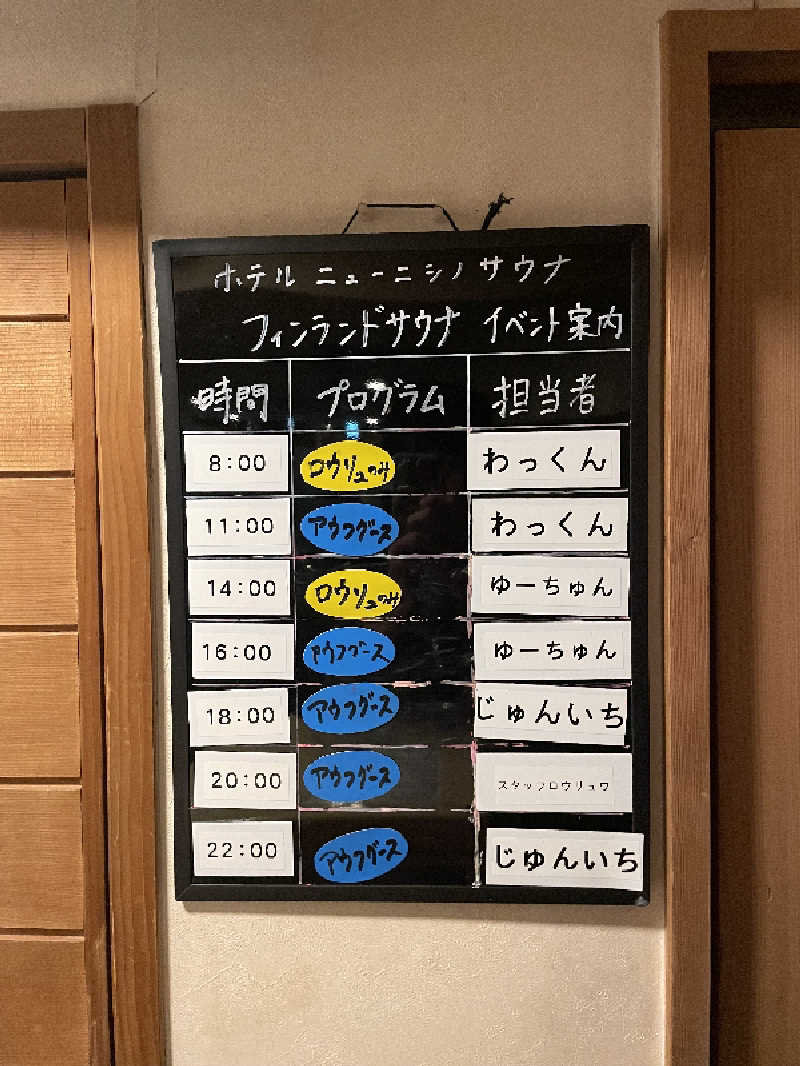 ホテル ニューニシノ サウナ
フィンランドサウナ イベント案内
時間 プログラム 担当者
8:00 ロウリュのみ わっくん
11:00 アウフグース わっくん
14:00 ロウリュのみ ゆーちゅん
16:00 アウフグース ゆーちゅん
18:00 アウフグース じゅんいち
20:00 アウフグース スタッフロウリュワ
22:00 アウフグース じゅんいち